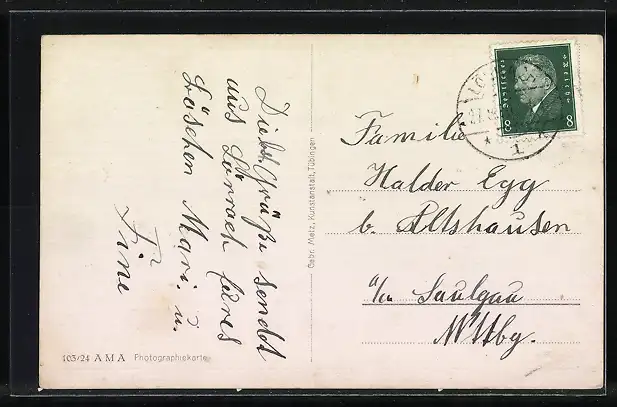 Die bst. Grüße sendet
aus Lörrach
Löschen Mari. u.
Fine
Gebr. Metz, Kunstanstalt, Tübingen
Familie
Halder Egg
b. Altshausen
a/n Saulgau
Wttbg.
Deutsches Reich
8 8
1
103/24 AMA Photographiekarte